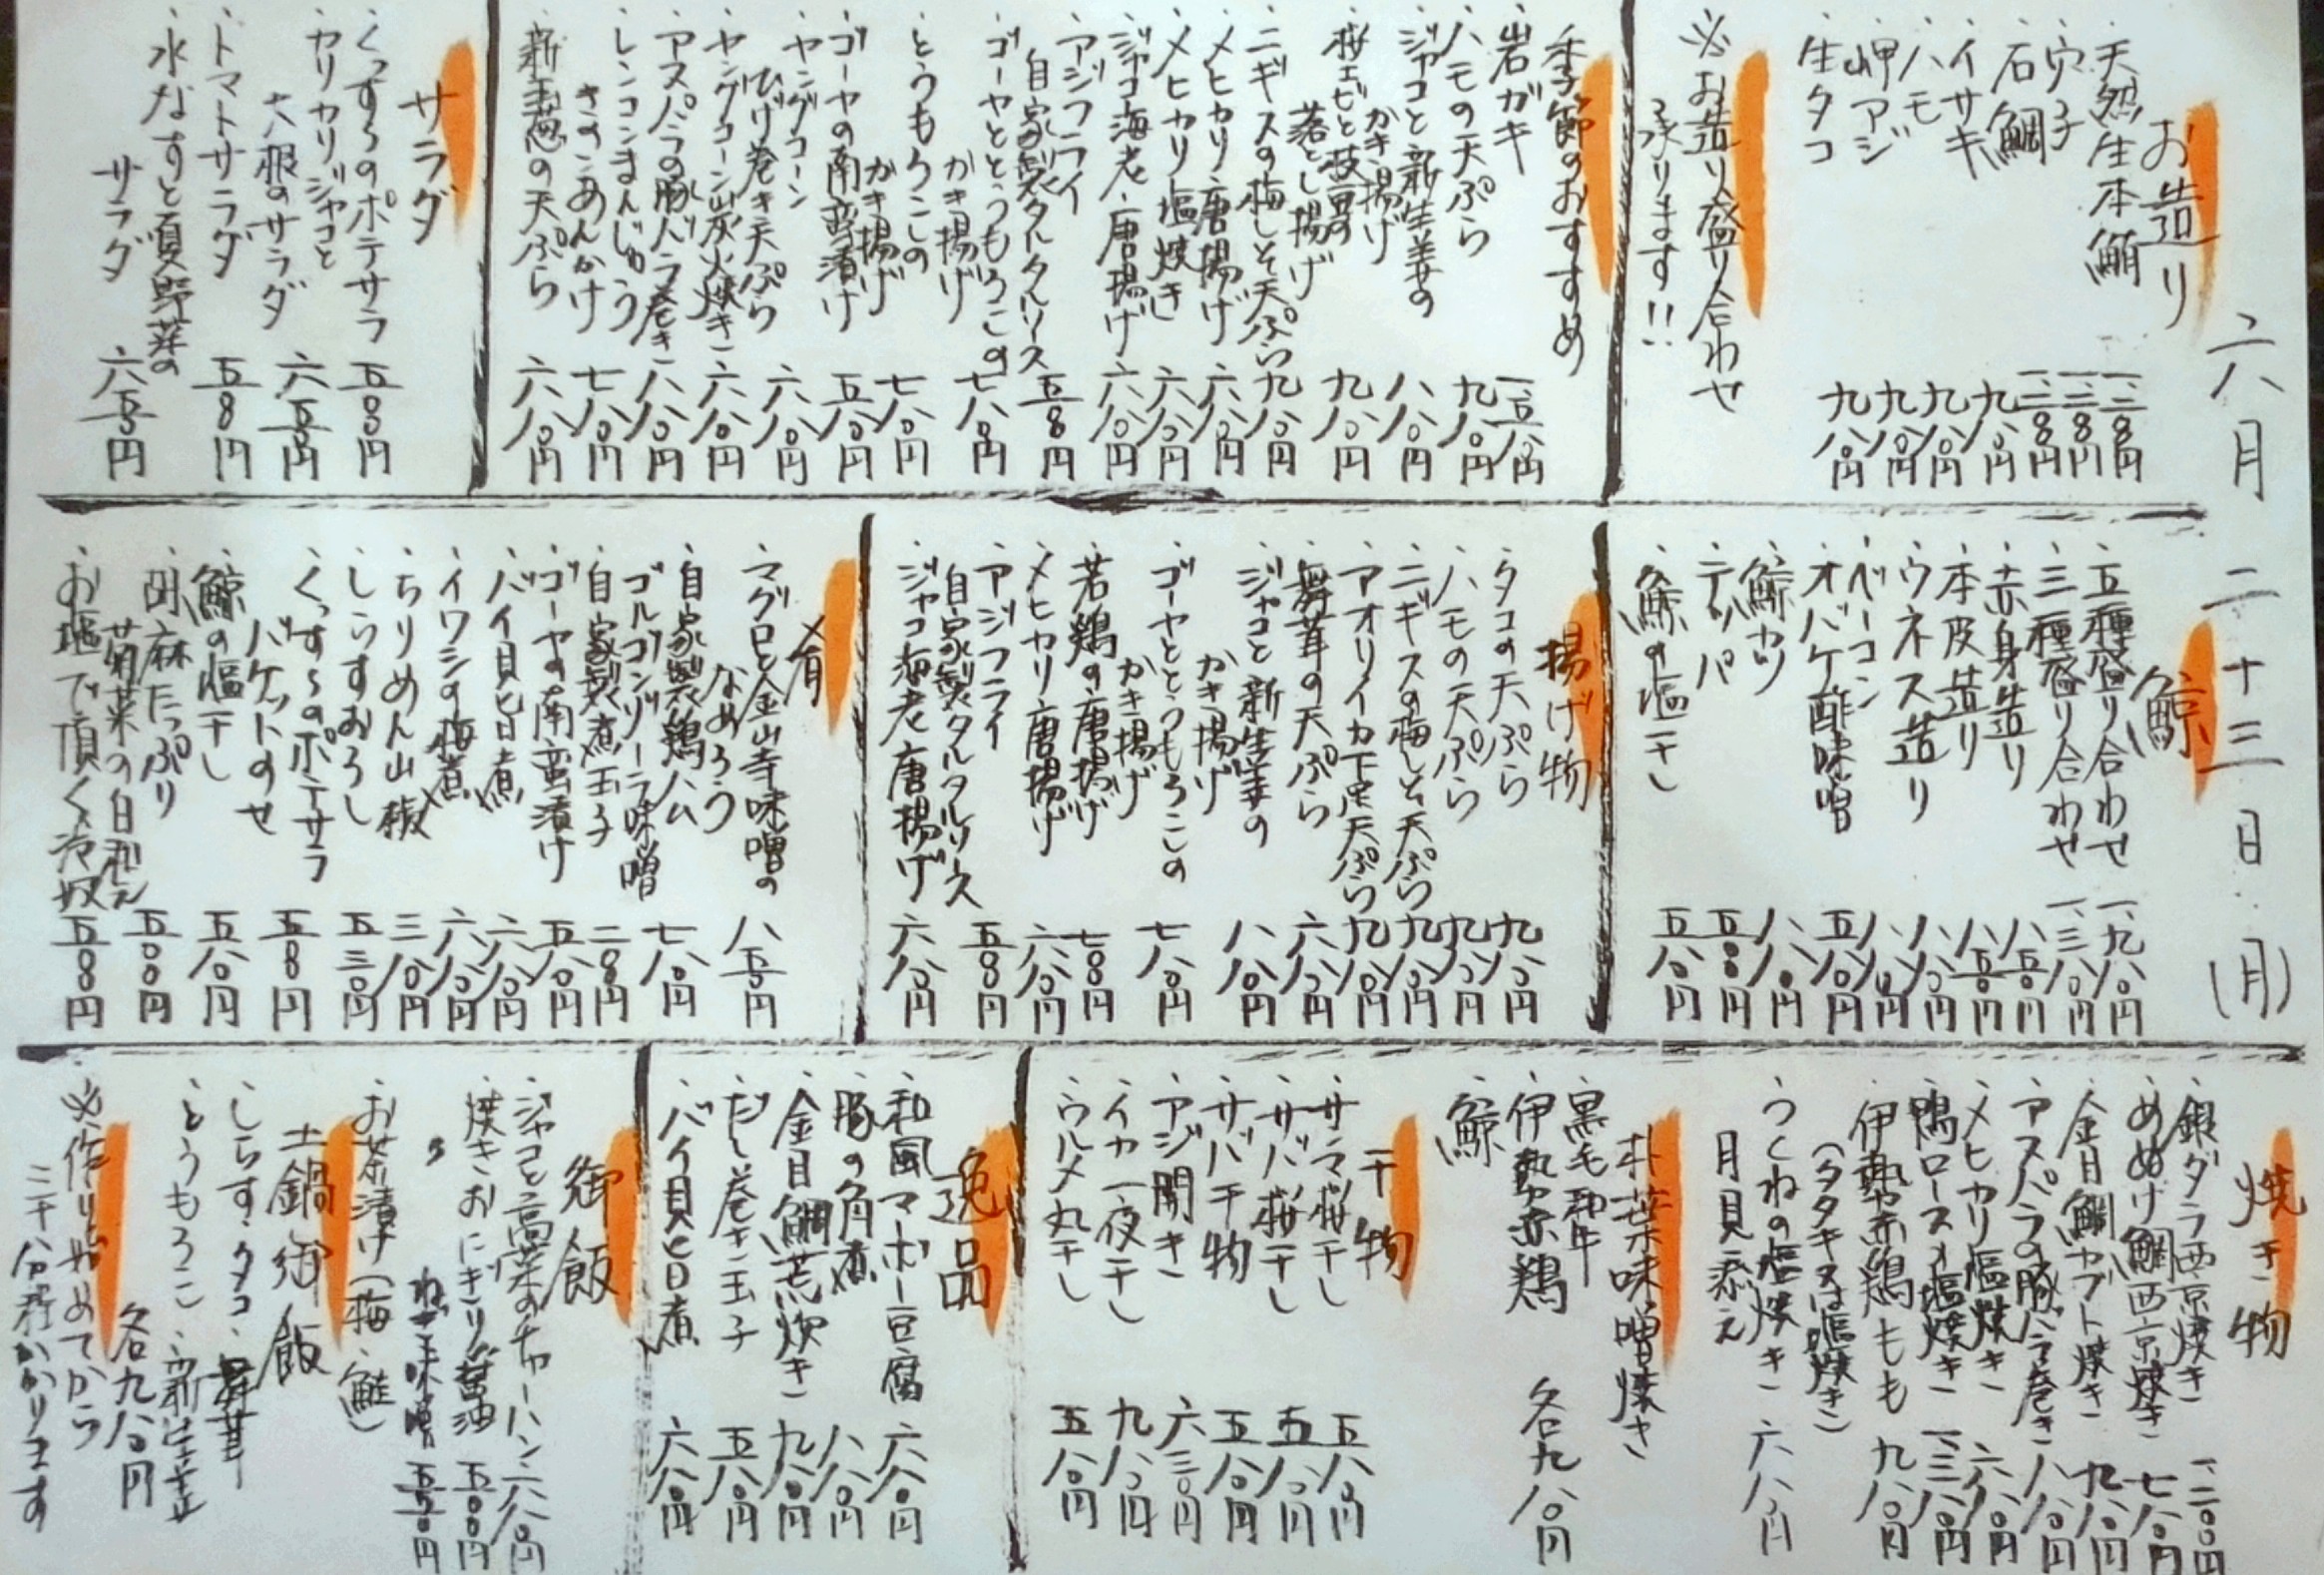 六月二十三日(月)
お造り
・天然生本鮪 一二八〇円
・穴子 一三八〇円
・石鯛 一三八〇円
・イサキ 九八〇円
・ハモ 九八〇円
・岬アジ 九八〇円
・生タコ 九八〇円
※お造り盛り合わせ
承ります!!
季節のおすすめ
・岩ガキ 一五八〇円
・ハモの天ぷら 九八〇円
・ジャコと新生姜の
かき揚げ 八八〇円
・桜エビと枝豆の
落とし揚げ 九八〇円
・ニギスの梅しそ天ぷら 九八〇円
・メヒカリ唐揚げ 六八〇円
・メヒカリ塩焼き 六八〇円
・ジャコ海老唐揚げ 六八〇円
・アジフライ
自家製タルタルソース 五五〇円
・ゴーヤととうもろこしの
かき揚げ 七八〇円
・とうもろこしの
かき揚げ 七八〇円
・ゴーヤの南蛮漬け 五八〇円
・ヤングコーン
ひげ巻き天ぷら 六八〇円
・ヤングコーン炭火焼き 六八〇円
・アスパラの豚バラ巻き 八八〇円
・レンコンまんじゅう
きのこあんかけ 七八〇円
・新玉葱の天ぷら 六八〇円
サラダ
・くっすんのポテサラ 五五〇円
・カリカリジャコと
大根のサラダ 六五〇円
・トマトサラダ 五五〇円
・水なすと夏野菜の
サラダ 六五〇円
鯨
・五種盛り合わせ 一、九八〇円
・三種盛り合わせ 一、三八〇円
・赤身造り 八五〇円
・本皮造り 八五〇円
・ウネス造り 八八〇円
・ベーコン 八八〇円
・オバケ酢味噌 五八〇円
・鯨カツ 八八〇円
・テッパ 五五〇円
・鯨の塩干し 五八〇円
揚げ物
・タコの天ぷら 九八〇円
・ハモの天ぷら 九八〇円
・ニギスの梅しそ天ぷら 九八〇円
・アオリイカ下足天ぷら 九八〇円
・舞茸の天ぷら 六八〇円
・ジャコと新生姜の
かき揚げ 八八〇円
・ゴーヤととうもろこしの
かき揚げ 七八〇円
・若鶏の唐揚げ 七〇〇円
・メヒカリ唐揚げ 六八〇円
・アジフライ
自家製タルタルソース 五五〇円
・ジャコ海老唐揚げ 六八〇円
肴
・マグロと金山寺味噌の
なめろう 八五〇円
・自家製鶏ハム
ゴルゴンゾーラ味噌 七八〇円
・自家製煮玉子 二〇〇円
・ゴーヤの南蛮漬け 五八〇円
・バイ貝旨煮 六八〇円
・イワシの梅煮 六八〇円
・ちりめん山椒 三八〇円
・しらすおろし 五三〇円
・くっすんのポテサラ
バケットのせ 五五〇円
・鯨の塩干し 五八〇円
・胡麻たっぷり
菊菜の白和え 五〇〇円
・お塩で頂く冷奴 五五〇円
焼き物
・銀ダラ西京焼き 一二〇〇円
・めぬけ鯛西京焼き 七八〇円
・金目鯛カブト焼き 九八〇円
・アスパラの豚バラ巻き 八八〇円
・メヒカリ塩焼き 六八〇円
・鴨ロース塩焼き 一三八〇円
・伊勢赤鶏もも 九八〇円
(タタキ又は塩焼き)
・つくねの塩焼き 六八〇円
月見添え
朴葉味噌焼き
・黒毛和牛
・伊勢赤鶏 各九八〇円
・鯨
干物
・サンマ桜干し 五八〇円
・サバ桜干し 五八〇円
・サバ干物 五八〇円
・アジ開き 六三〇円
・イカ一夜干し 九八〇円
・ウルメ丸干し 五八〇円
逸品
・和風マーボー豆腐 六八〇円
・豚の角煮 八八〇円
・金目鯛荒炊き 九八〇円
・だし巻き玉子 五八〇円
・バイ貝旨煮 六八〇円
御飯
・ジャコと高菜のチャーハン 六八〇円
・焼きおにぎり醤油 五〇〇円
〃 ねぎ味噌 五五〇円
・お茶漬け(梅・鮭)
土鍋御飯
・しらす・タコ・舞茸
・とうもろこし・新生姜
各九八〇円
※作り始めてから
二十分程かかります